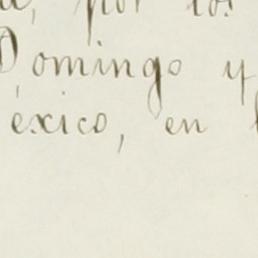 por los
Domingo y
éxico, en